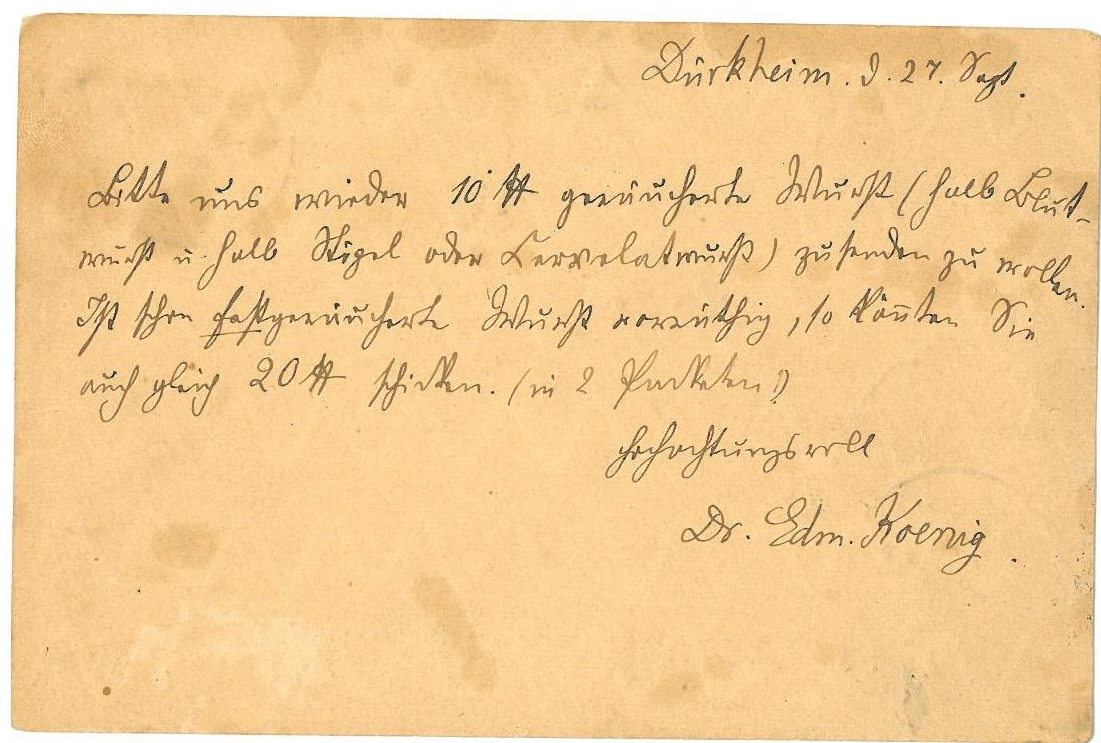 Dürkheim. d. 27. Sept.
Bitte uns wieder 10 ℔ geräucherte Wurst (halb Blut-
wurst u. halb oder Cervelatwurst) zusenden zu wollen.
Ist schon festgeräucherte Wurst vorräthig, so könnten Sie
auch gleich 20 ℔ schicken. (in 2 Packeten!)
Hochachtungsvoll
Dr. Edm. Koenig.